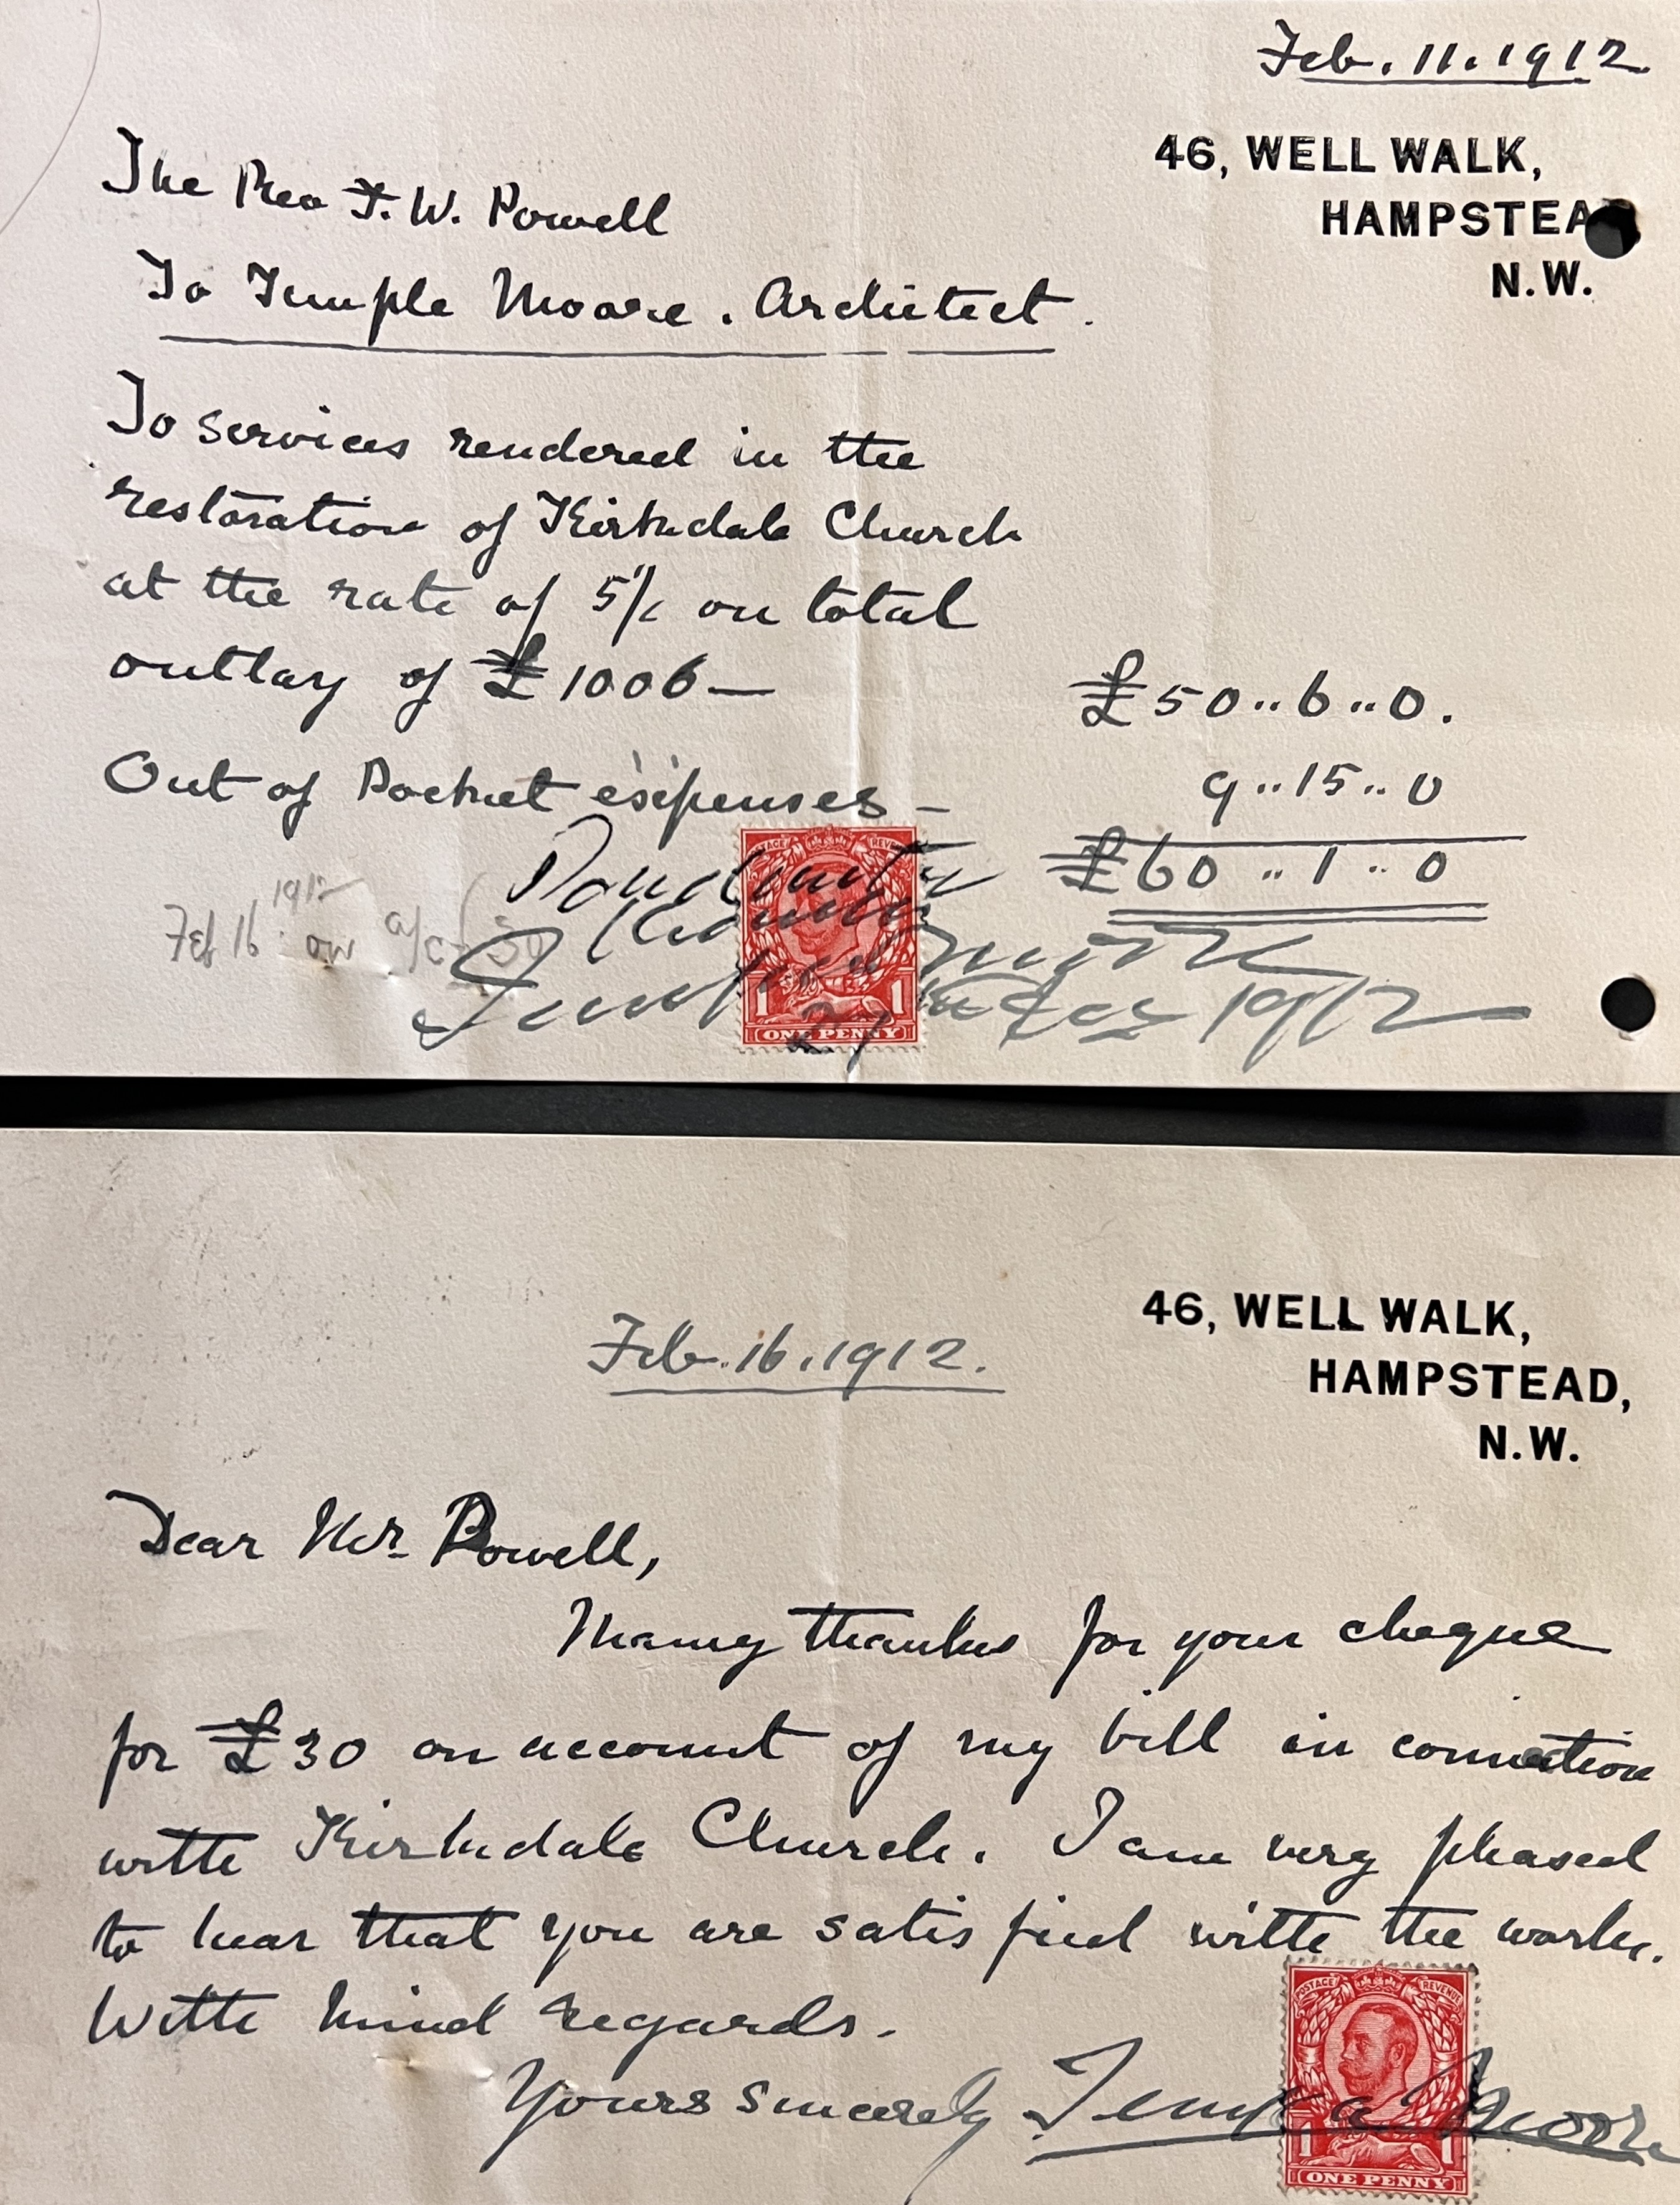 Feb. 11. 1912
46, WELL WALK,
HAMPSTEA
N.W.
The Rev F. W. Powell
To Temple Moore. Architect.
To services rendered in the
restoration of Kirkdale Church
at the rate of 5% on total
outlay of £1006— £50..6..0.
Out of Pocket expenses — 9..15..0
£60..1..0
Feb 16 1912 on a/c £30
Paid with
thanks
Temple Moore
Dec 1912
POSTAGE REVENUE
1 1
ONE PENNY
46, WELL WALK,
HAMPSTEAD,
N.W.
Feb. 16. 1912.
Dear Mr Powell,
Many thanks for your cheque
for £30 on account of my bill in connection
with Kirkdale Church. I am very pleased
to hear that you are satisfied with the work.
With kind regards.
Yours sincerely Temple Moore
POSTAGE REVENUE
1 1
ONE PENNY